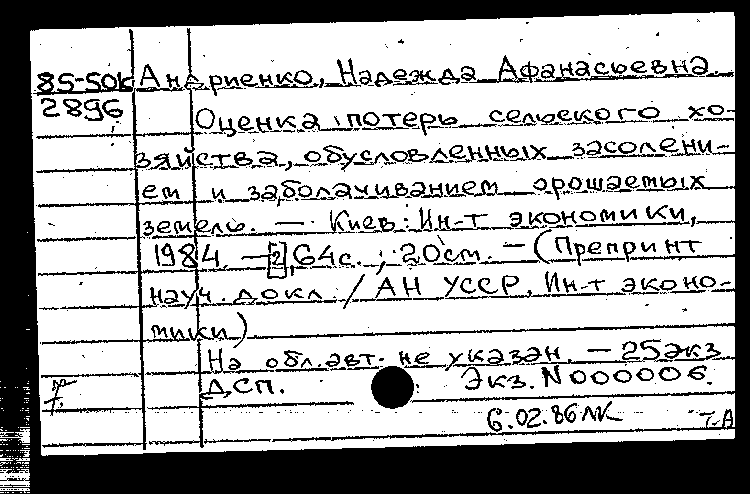 85-50к Андриенко, Надежда Афанасьевна.
2896 Оценка потерь сельского хо-
зяйства, обусловленных засолени-
ем и заболачиванием орошаемых
земель. — Киев: Ин-т экономики,
1984. — [2], 64 с. ; 20 см. — (Препринт
науч. докл. / АН УССР, Ин-т эконо-
мики)
На обл. авт. не указан. — 25 экз
ДСП. Экз. N 000006.
6.02.86